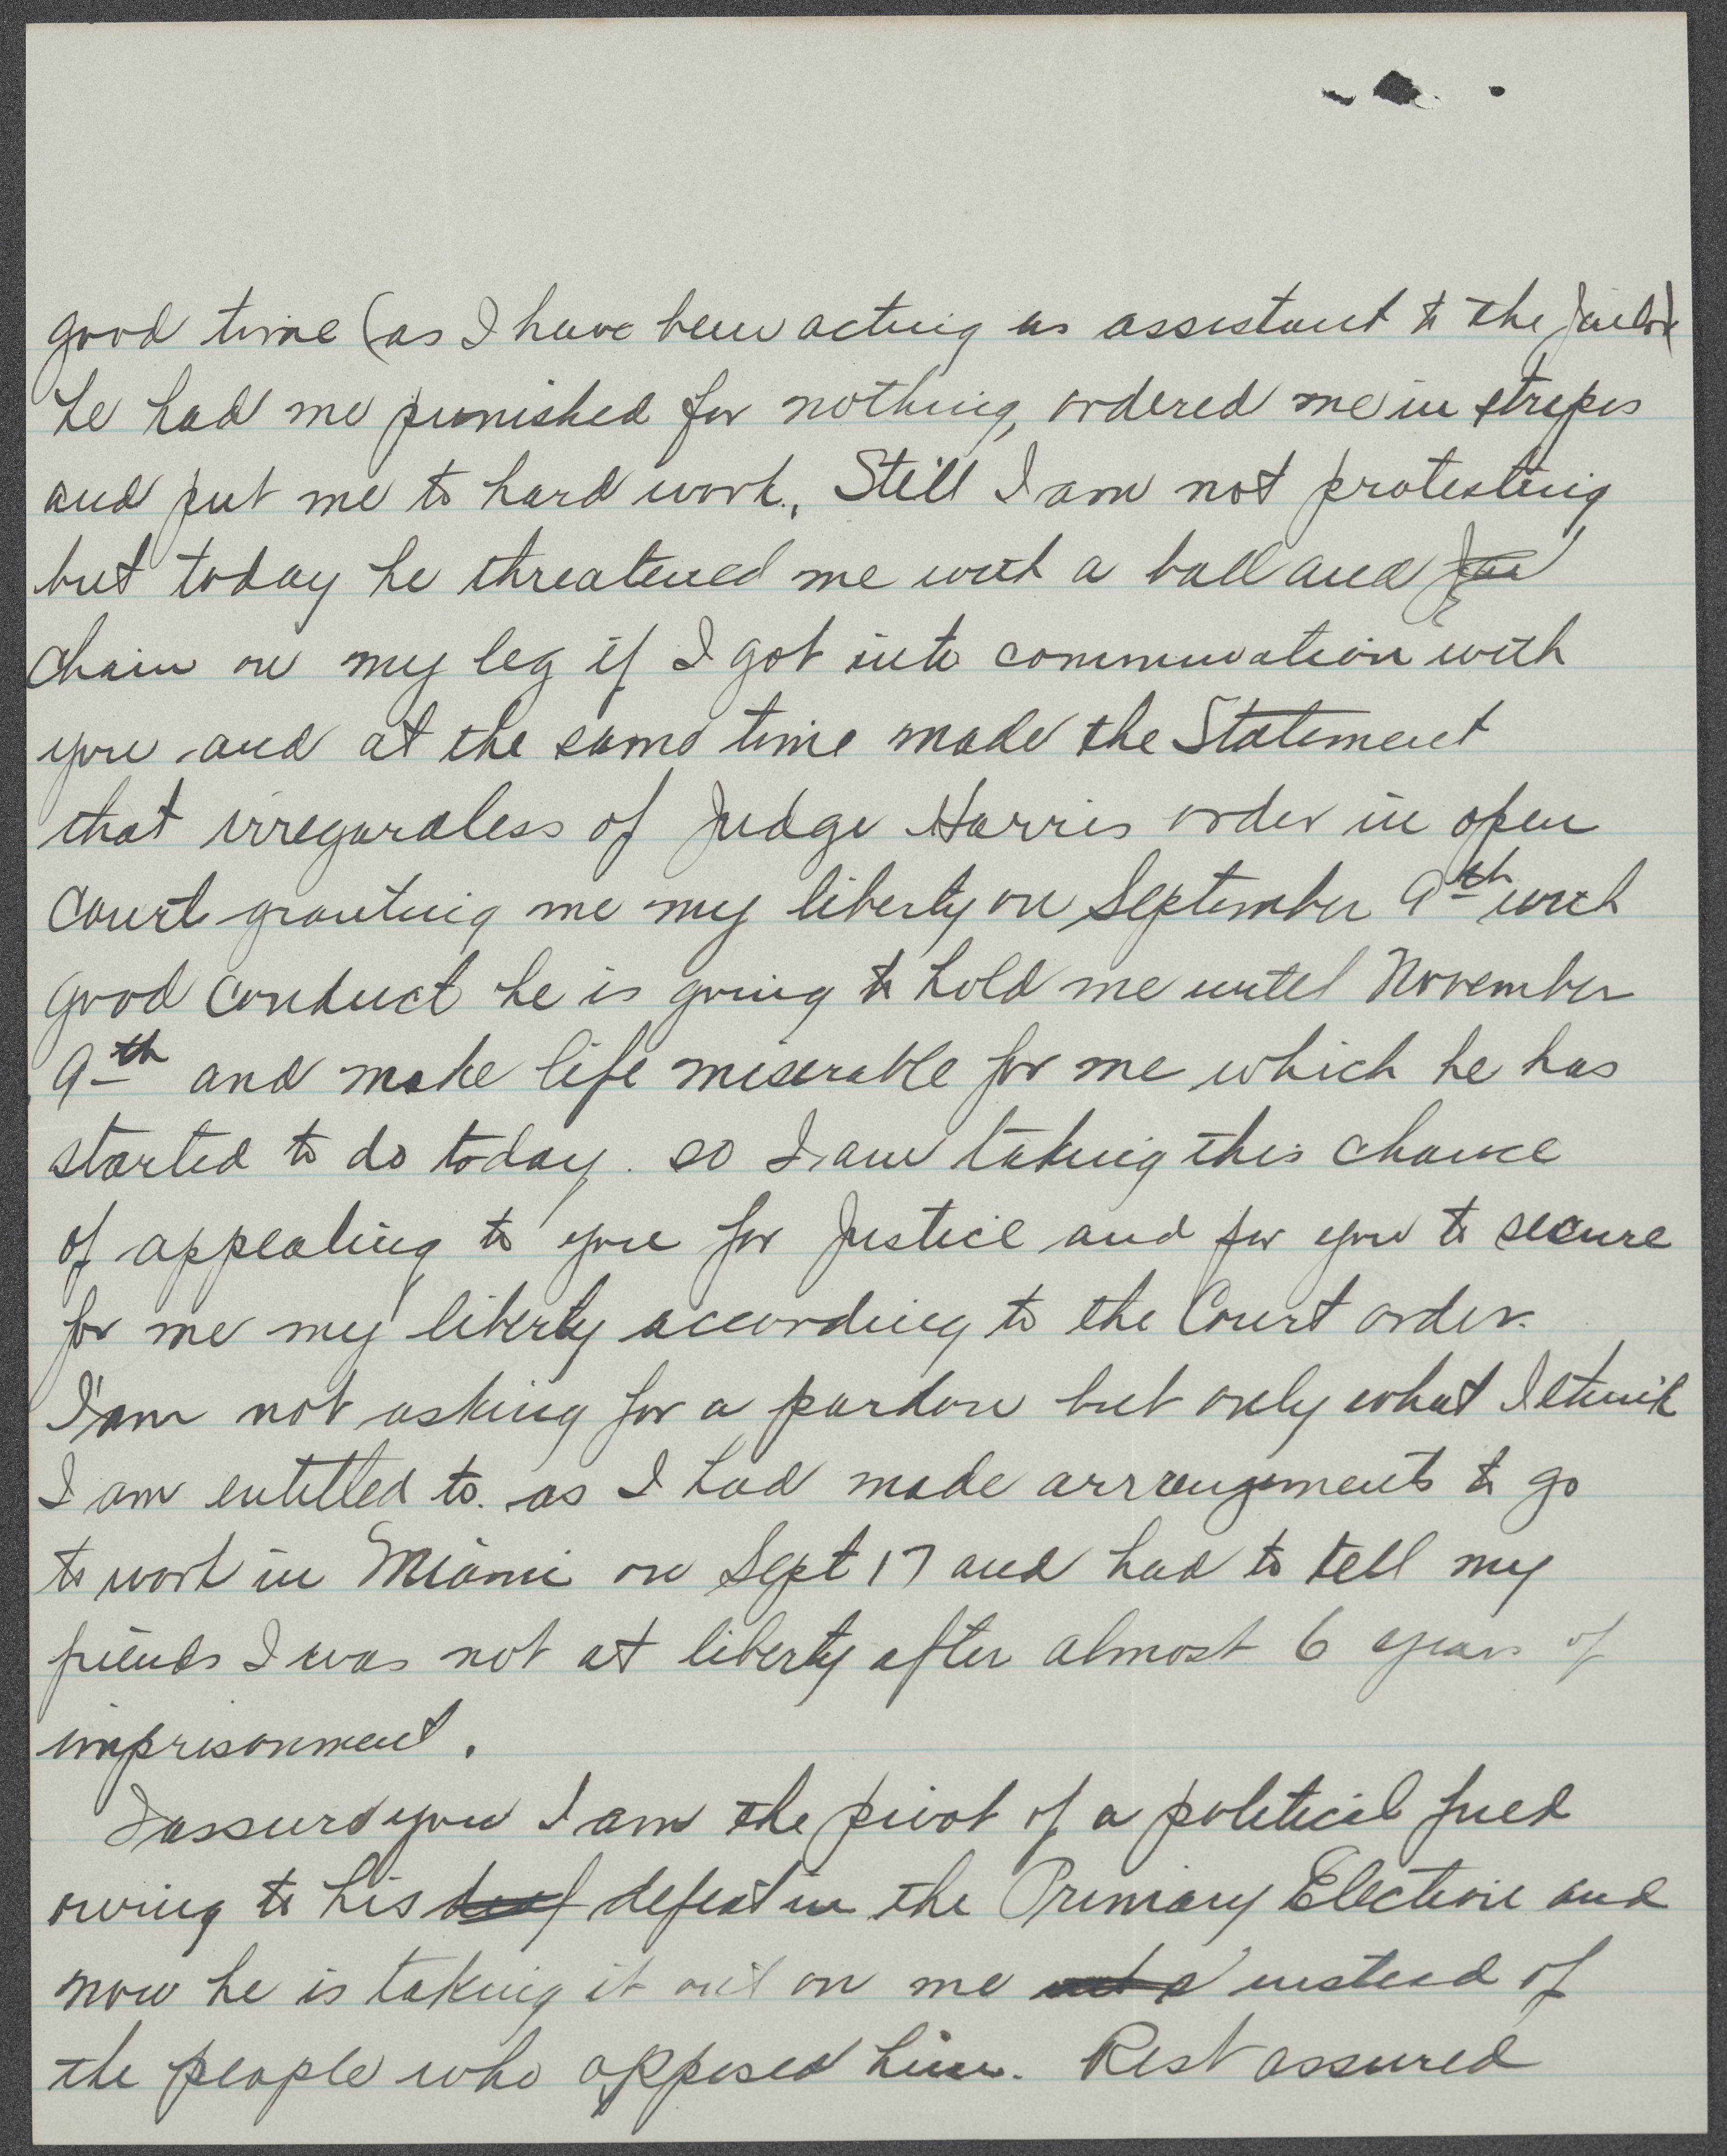 good time (as I have been acting as assistant to the Jailor)
he had me punished for nothing, ordered me in stripes
and put me to hard work., Still I am not protesting
but today he threatened me with a ball and
chain on my leg if I got into communation with
you and at the same time made the Statement
that irregardless of Judge Harris order in open
Court granting me my liberty on September 9th with
good conduct he is going to hold me until November
9th and make life miserable for me which he has
started to do today. so I am taking this chance
of appealing to you for Justice and for you to secure
for me my liberty according to the Court order.
I'am not asking for a pardon but only what I think
I am entitled to. as I had made arrangements to go
to work in Miami on Sept 17 and had to tell my
friends I was not at liberty after almost 6 years of
imprisonment.
I assure you I am the pivot of a political fued
owing to his defeat in the Primary Election and
now he is taking it out on me instead of
the people who opposed him. Rest assured